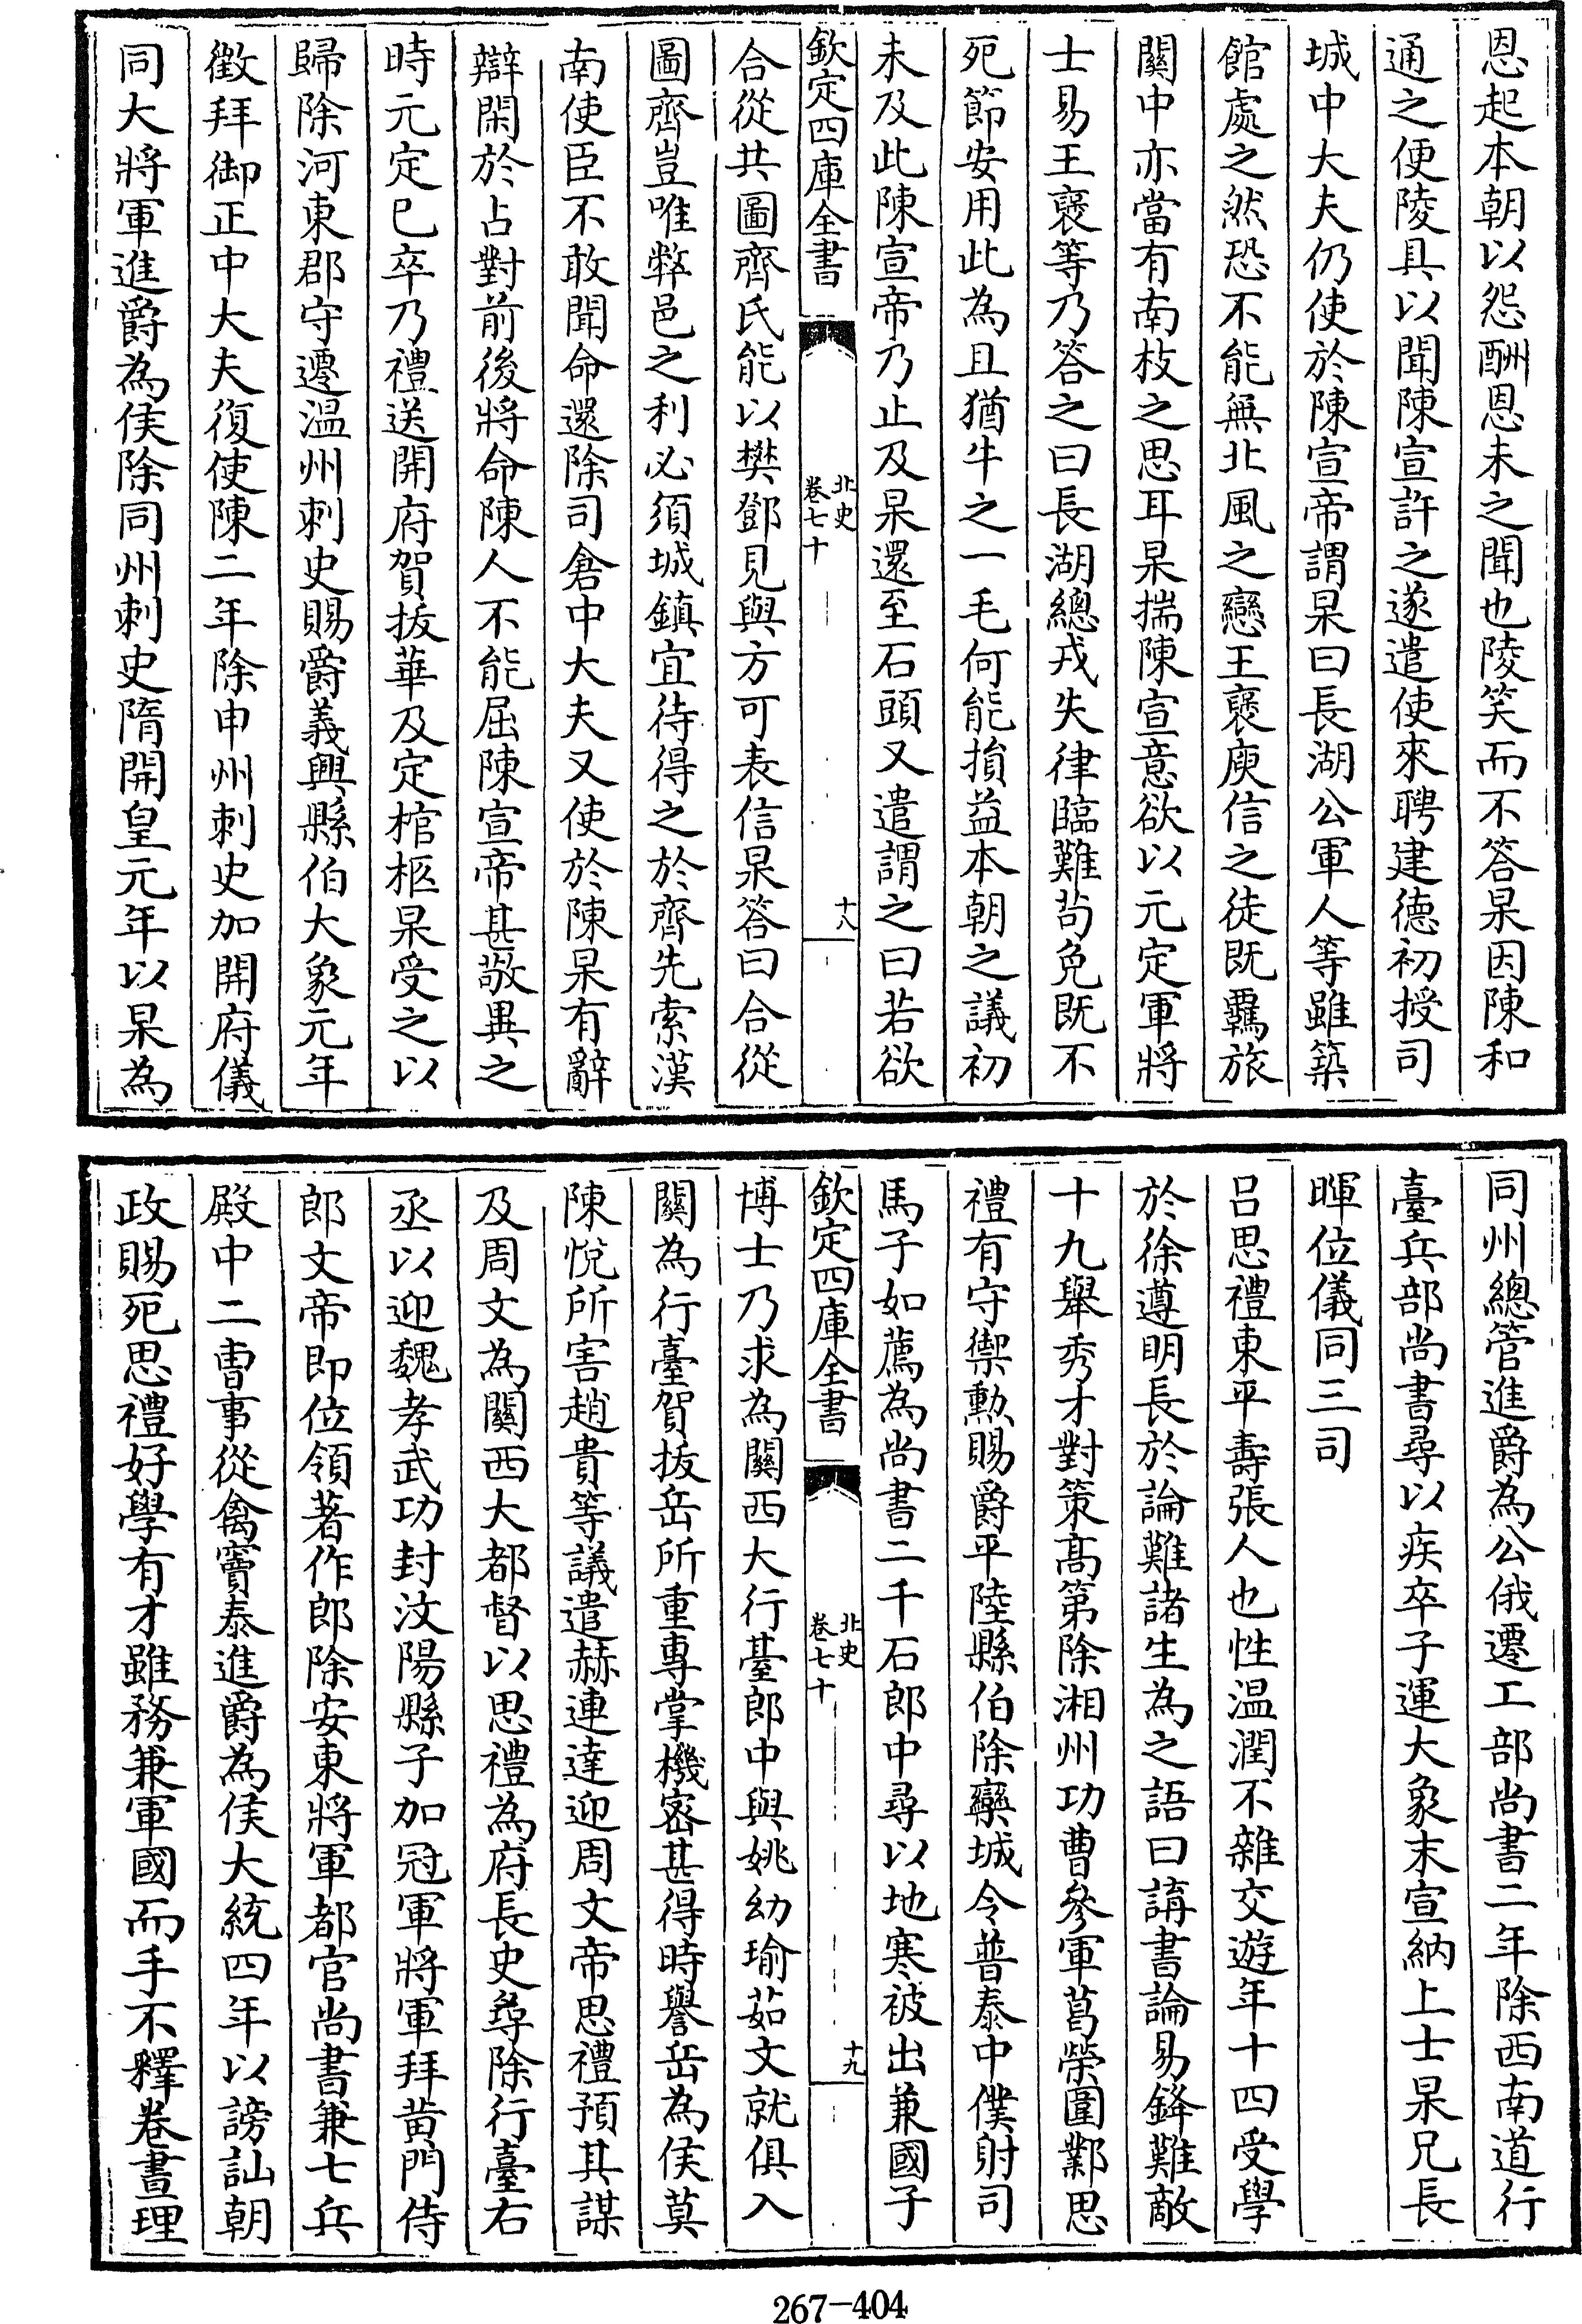 恩起本朝以怨酬恩未之聞也陵笑而不答杲因陳和
通之便陵具以聞陳宣許之遂遣使來聘建德初授司
城中大夫仍使於陳宣帝謂杲曰長湖公軍人等雖築
館處之然恐不能無北風之戀王襃庾信之徒既羈旅
關中亦當有南枝之思耳杲揣陳宣意欲以元定軍將
士易王襃等乃答之曰長湖總戎失律臨難茍免既不
死節安用此為且猶牛之一毛何能損益本朝之議初
未及此陳宣帝乃止及杲還至石頭又遣謂之曰若欲
欽定四庫全書
北史
卷七十
十八
合從共圖齊氏能以樊鄧見與方可表信杲答曰合從
圖齊豈唯弊邑之利必須城鎮宜待得之於齊先索漢
南使臣不敢聞命還除司倉中大夫又使於陳杲有辭
辯閑於占對前後將命陳人不能屈陳宣帝甚敬異之
時元定已卒乃禮送開府賀拔華及定棺柩杲受之以
歸除河東郡守遷温州刺史賜爵義興縣伯大象元年
徵拜御正中大夫復使陳二年除申州刺史加開府儀
同大將軍進爵為侯除同州刺史隋開皇元年以杲為
同州總管進爵為公俄遷工部尚書二年除西南道行
臺兵部尚書尋以疾卒子運大象末宣納上士杲兄長
暉位儀同三司
吕思禮東平壽張人也性温潤不雜交遊年十四受學
於徐遵明長於論難諸生為之語曰講書論易鋒難敵
十九舉秀才對策髙第除湘州功曹參軍葛榮圍鄴思
禮有守禦勲賜爵平陸縣伯除欒城令普泰中僕射司
馬子如薦為尚書二千石郎中尋以地寒被出兼國子
欽定四庫全書
北史
卷七十
十九
博士乃求為關西大行臺郎中與姚幼瑜茹文就俱入
關為行臺賀拔岳所重專掌機密甚得時譽岳為侯莫
陳悅所害趙貴等議遣赫連達迎周文帝思禮預其謀
及周文為關西大都督以思禮為府長史尋除行臺右
丞以迎魏孝武功封汶陽縣子加冠軍將軍拜黄門侍
郎文帝即位領著作郎除安東將軍都官尚書兼七兵
殿中二曹事從禽竇泰進爵為侯大統四年以謗訕朝
政賜死思禮好學有才雖務兼軍國而手不釋卷晝理
267-404